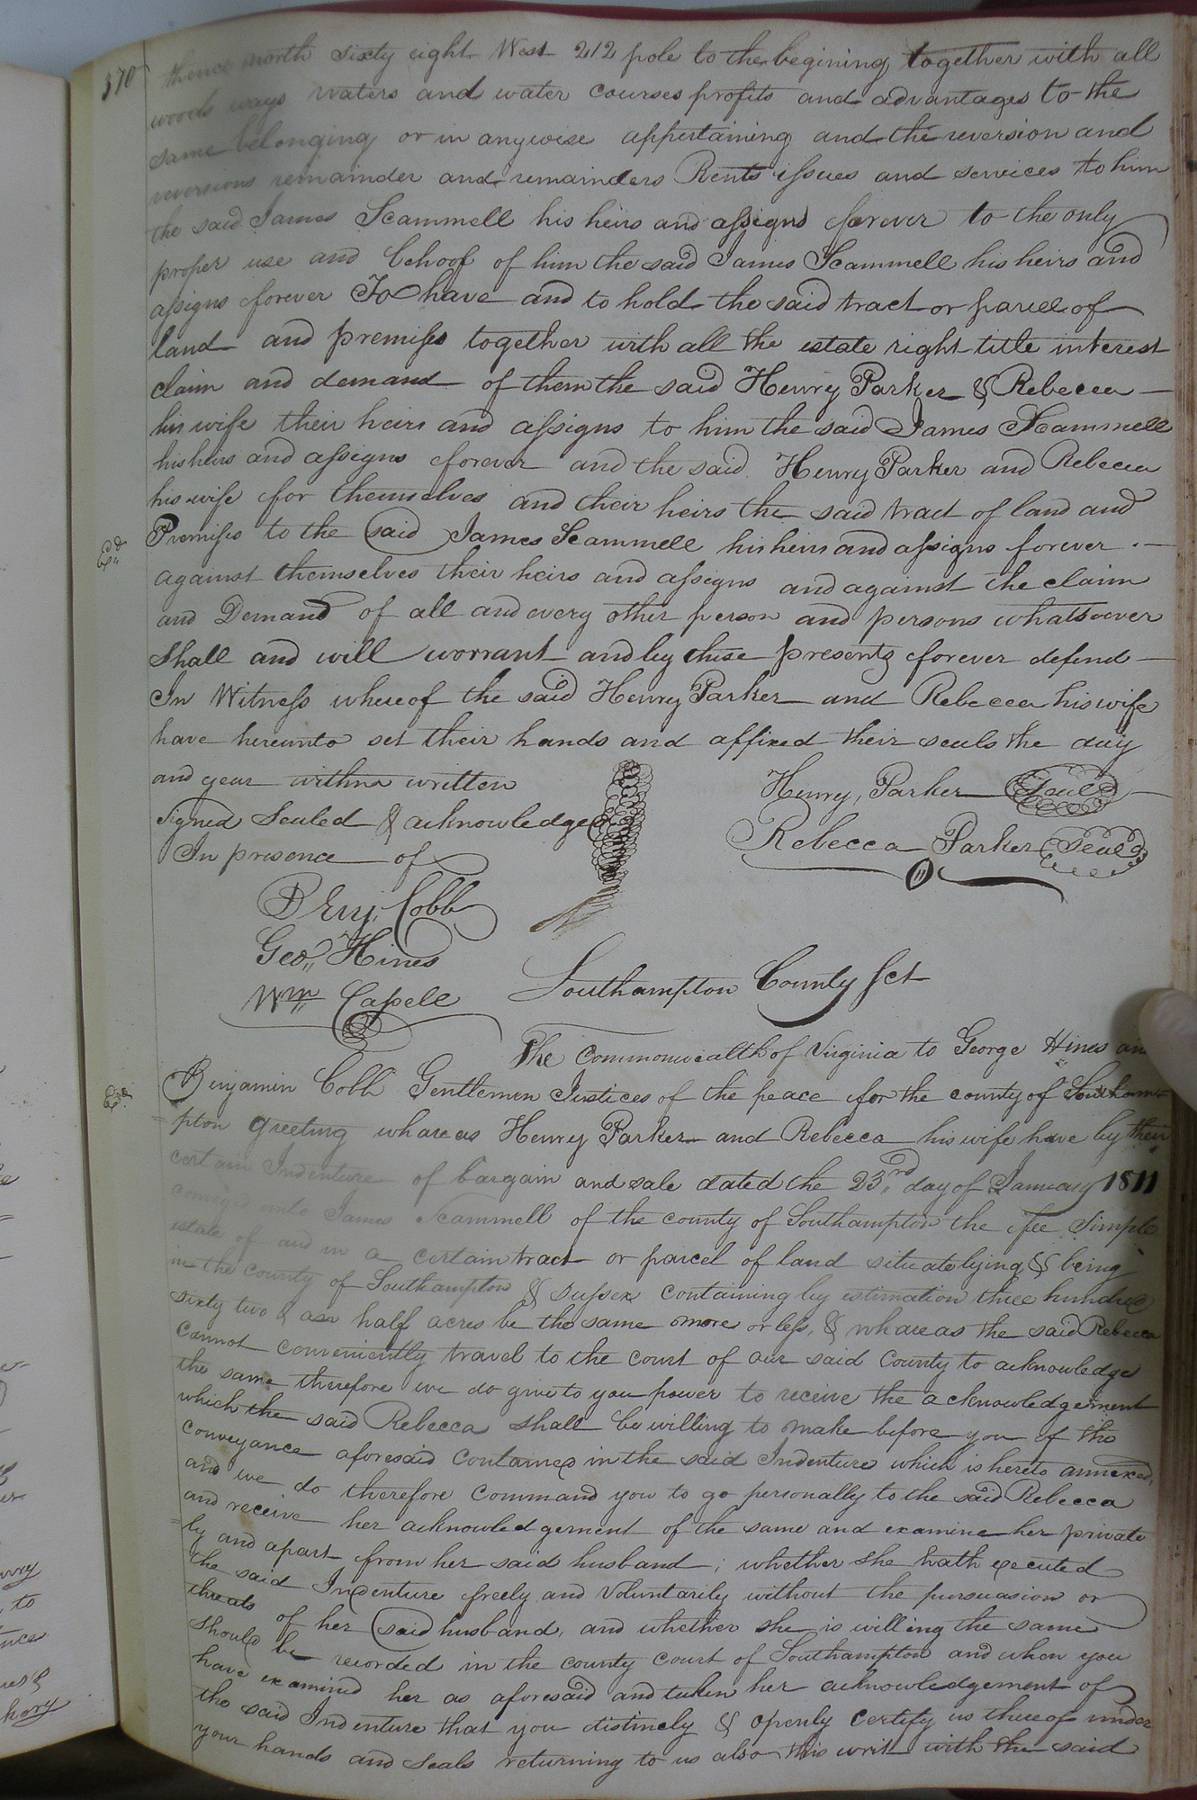 370
thence north sixty eight West 212 pole to the begining together with all
woods ways waters and water courses profits and advantages to the
same belonging or in anywise appertaining and the reversion and
reversions remainder and remainders Rents issues and services to him
the said James Scammell his heirs and assigns forever to the only
proper use and behoof of him the said James Scammell his heirs and
assigns forever To have and to hold the said tract or parcel of
land and premises together with all the estate right title interest
claim and demand of them the said Henry Parker & Rebecca
his wife their heirs and assigns to him the said James Scammell
his heirs and assigns forever and the said Henry Parker and Rebecca
his wife for themselves and their heirs the said tract of land and
Premises to the said James Scammell his heirs and assigns forever
against themselves their heirs and assigns and against the claim
and Demand of all and every other person and persons whatsoever
Shall and will worrant and by these presents forever defend
In Witness whereof the said Henry Parker and Rebecca his wife
have hereunto set their hands and affixed their seals the day
and year within written
Henry Parker Seal
Signed Sealed & acknowledged
Rebecca Parker Seal
In presence of
Benj. Cobb
Geo,, Hines
Wm Capell
Southampton County Sct
The Commonwealth of Virginia to George Hines an
Benjamin Cobb Gentlemen Justices of the peace for the county of Southam
pton greeting whareas Henry Parker and Rebecca his wife have by their
certain Indenture of bargain and sale dated the 23rd day of January 1811
conveyed unto James Scammell of the county of Southampton the fee Simple
estate of and in a certain tract or parcel of land situate lying & being
in the county of Southampton & Sussex containing by estimation three hundred
sixty two & an half acres be the same more or less, & whareas the said Rebecca
cannot conveniently travel to the court of our said County to acknowledge
the same therefore we do give to you power to receive the acknowledgement
which the said Rebecca shall be willing to make before you of the
conveyance aforesaid contained in the said Indenture which is hereto annexed,
and we do therefore command you to go personally to the said Rebecca
and receive her acknowledgement of the same and examine her private
ly and apart from her said husband; whether she hath executed
the said Indenture freely and Voluntarily without the pursuasion or
threats of her said husband, and whether she is willing the same
should be recorded in the county court of Southampton and when you
have examined her as aforesaid and taken her acknowledgement of
the said Indenture that you distinely & openly certify us thereof under
your hands and seals returning to us also this writ with the said